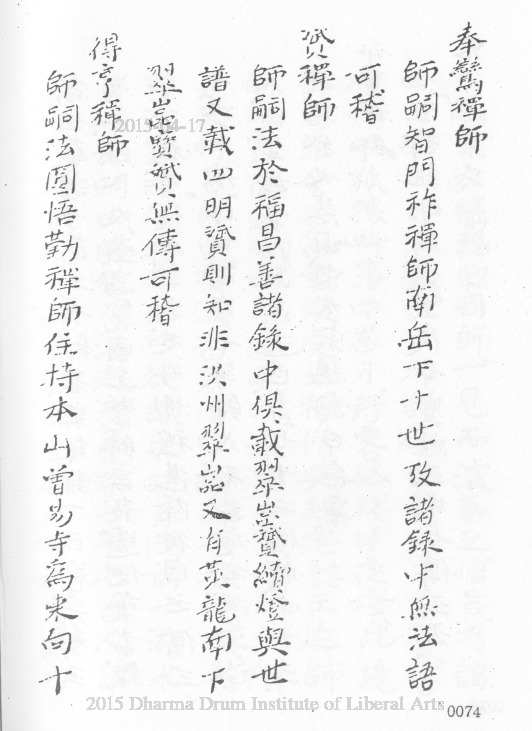 奉鸞禪師
師嗣智門祚禪師南岳下十世攷諸錄中無法語
可稽
贇禪師
師嗣法於福昌善諸錄中俱載翠嵓贇續燈與世
譜又載四明贇則知非洪州翠嵓又有黃龍南下
翠嵓贇無傳可稽
得亨禪師
師嗣法圜悟勤禪師住持本山曾易寺為東向十
2015-04-17
2015 Dharma Drum Institute of Liberal Arts
0074